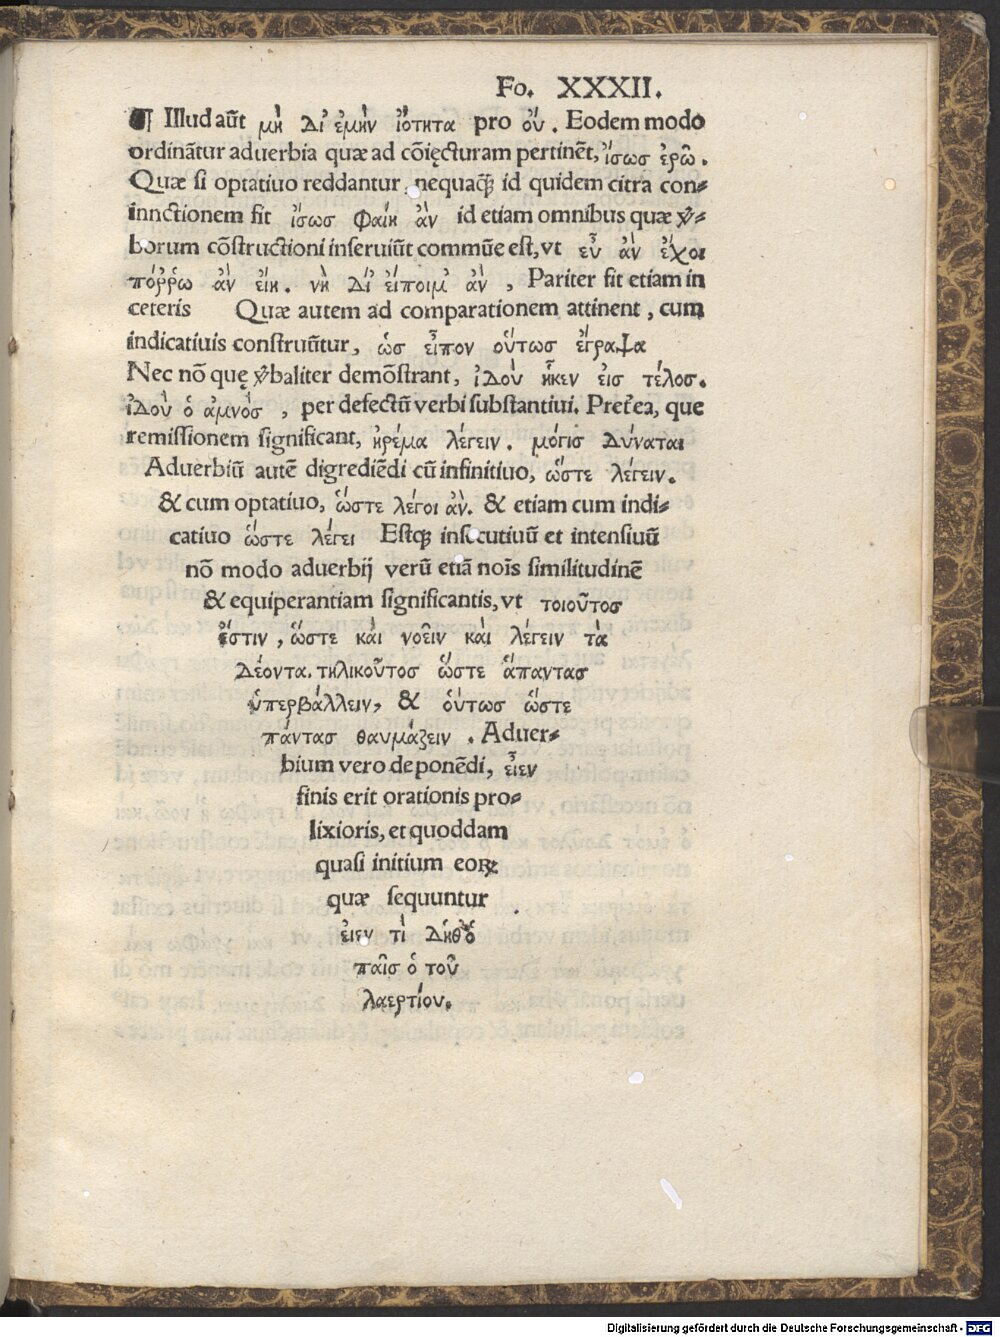 Fo. XXXII.
¶ Illud aūt μὴ Δἰ ἐμὴν ἰότητα pro ὀύ. Eodem modo
ordinātur aduerbia quæ ad cōięcturam pertinēt, ἴσωσ ἐρῶ.
Quæ si optatiuo reddantur, nequaꝗ̃ id quidem citra con⸗
innctionem fit ἴσωσ φαίη ἀν id etiam omnibus quæ ꝟ⸗
borum cōstructioni inseruiūt commūe est, vt εὖ ἀν ἔχοι
πόῤῥω ἀν ἐίη. νὴ Δἰ ἐίποιμ᾽ ἀν, Pariter fit etiam in
ceteris Quæ autem ad comparationem attinent, cum
indicatiuis construūtur, ὡσ εἶπον οὕτωσ ἔγραψα
Nec nō quę ꝟbaliter demōstrant, ἰδοὺ ἧκεν ἐισ τέλοσ.
ἰδοὺ ὁ ἀμνόσ, per defectū verbi substantiui. Preťea, que
remissionem significant, ἠρέμα λέγειν. μόγισ δύναται
Aduerbiū autē digrediēdi cū infinitiuo, ὥστε λέγειν.
& cum optatiuo, ὥστε λέγοι ἀν. & etiam cum indi⸗
catiuo ὥστε λέγει Estꝗ insecutiuū et intensiuū
nō modo aduerbij verū etiā noīs similitudinē
& equiperantiam significantis, vt τοιοῦτοσ
ἔστιν, ὥστε κὰι νοεῖν κὰι λέγειν τὰ
δέοντα. τηλικοῦτοσ ὥστε ἅπαντασ
ὑπερβάλλειν, & ὁύτωσ ὥστε
πάντασ θαυμάζειν. Aduer⸗
bium vero deponēdi, εἶεν
finis erit orationis pro⸗
lixioris, et quoddam
quasi initium eoꝝ
quæ sequuntur
ἐιεν τί δῆθ᾽ ὁ
παῖσ ὁ τοῦ
λαερτίου.
Digitalisierung gefördert durch die Deutsche Forschungsgemeinschaft - DFG